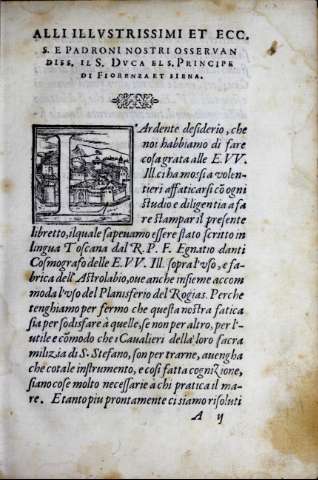 ALLI ILLVSTRISSIMI ET ECC.
S. E PADRONI NOSTRI OSSERVAN
DISS. IL S. DVCA EL S. PRINCIPE
DI FIORENZA ET SIENA.
L'Ardente desiderio, che
noi habbiamo di fare
cosa grata alle E.VV.
Ill. ci ha mossi a volen-
tieri affaticarsi cō ogni
studio e diligentia a fa
re stampar il presente
libretto, il quale sapevamo essere stato scritto in
lingua Toscana dal R. P. F. Egnatio danti
Cosmografo delle E. VV. Ill. sopra l'uso, e fa-
brica dell'Astrolabio, oue anche insieme accom
moda l'uso del Planisferio del Rogias. Perche
tenghiamo per fermo che questa nostra fatica
sia per sodisfare à quelle, se non per altro, per l'u-
tile e cōmodo che i Caualieri della loro sacra
milizia di S. Stefano, son per trarne, auengha
che cotale instrumento, e cosi fatta cognizione,
siano cose molto necessarie a chi pratica il ma-
re. E tanto piu prontamente ci siamo risoluti
A ij